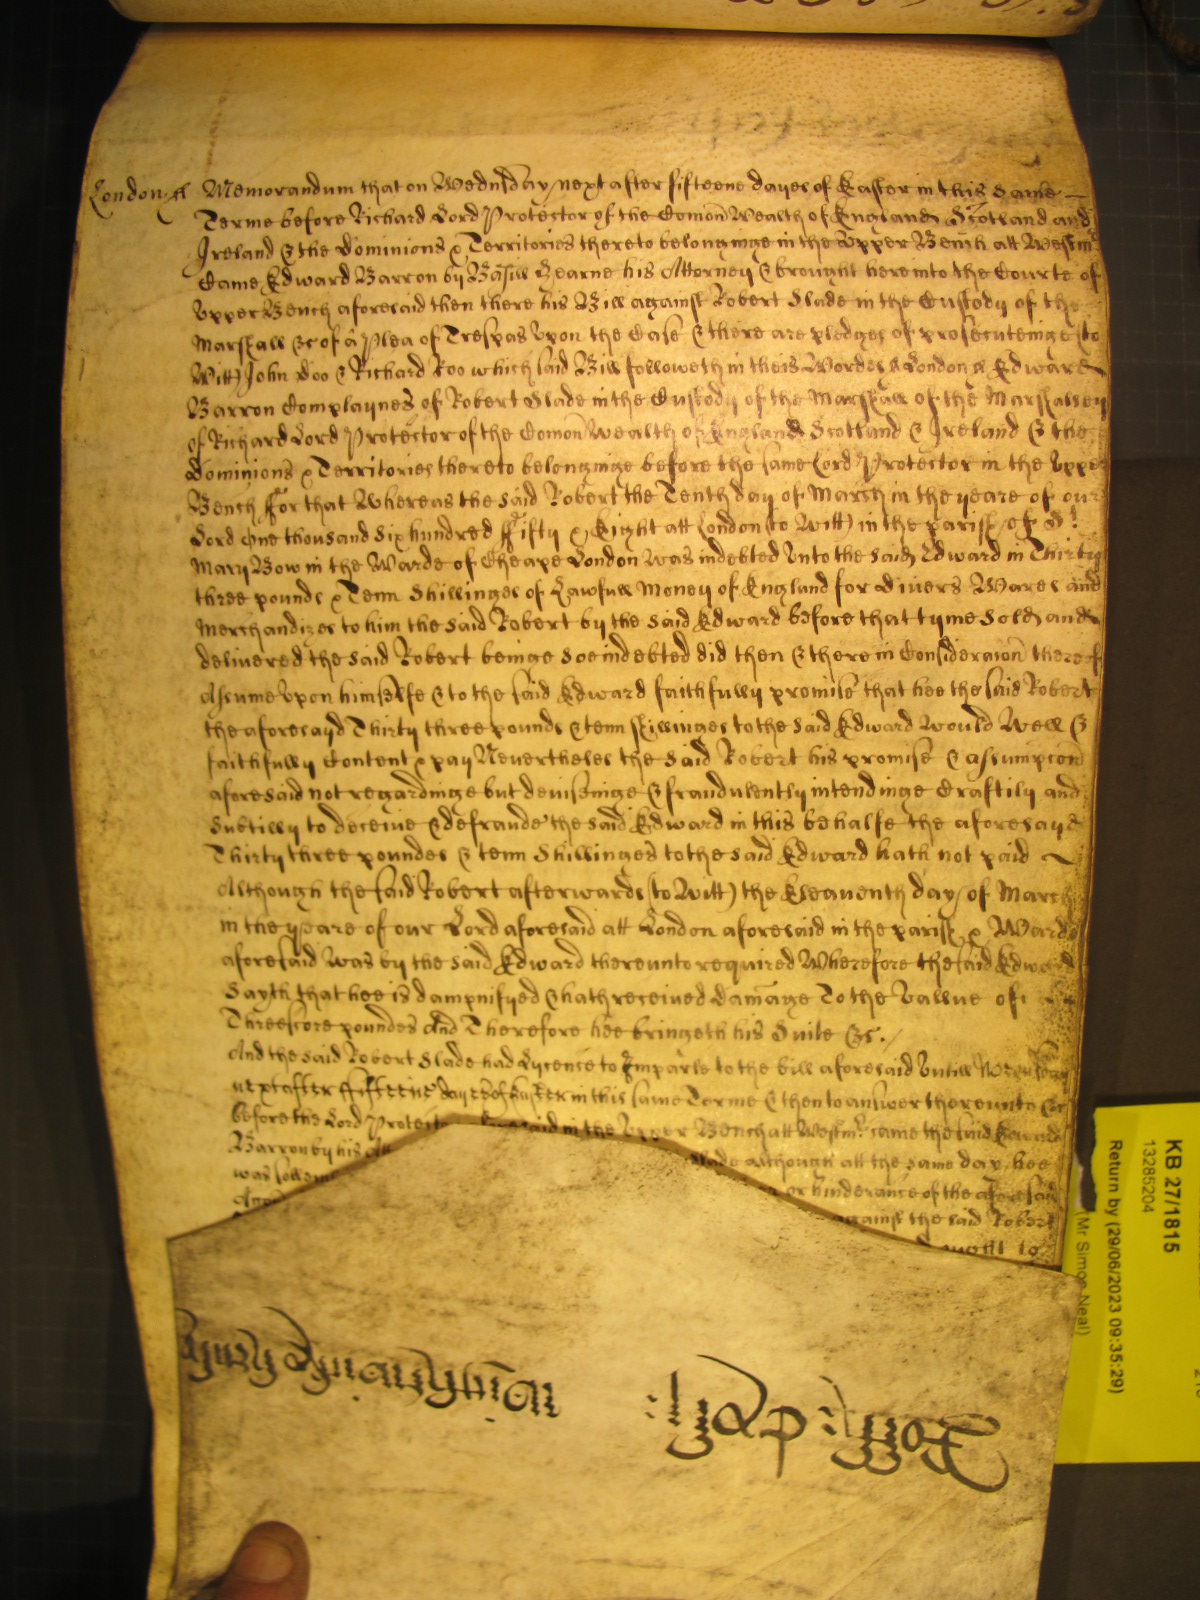 London ss Memorandum that on Wednesday next after fifteene dayes of Easter in this same
Terme before Richard Lord Protector of the Comon Wealth of England Scotland and
Ireland & the Dominions & Territories thereto belonginge in the Upper Bench att Westmr
Came Edward Barron by Basill Hearne his Attorney & brought here into the Courte of
Upper Bench aforesaid then there his Bill against Robert Slade in the Custody of the
Marshall &c of a Plea of Trespas Upon the Case & there are pledges of prosecuteinge (to
Witt) John Doo & Richard Roo which said Bill followeth in theis Wordes ss London ss Edward
Barron Complaynes of Robert Slade in the Custody of the Marshall of the Marshalsey
of Richard Lord Protector of the Comon Wealth of England Scotland & Ireland & the
Dominions & Territories thereto belonginge before the same Lord Protector in the Upper
Bench For that Whereas the said Robert the Tenth day of March in the yeare of our
Lord One thousand Six hundred Fifty & Eight att London (to Witt) in the parish of St
Mary Bow in the Warde of Cheape London Was indebted Unto the said Edward in Thirty
three pounds & Tenn Shillinges of Lawfull Money of England for divers Wares and
Merchandizes to him the said Robert by the said Edward before that tyme Sold and
delivered the said Robert beinge soe indebted did then & there in Consideracion thereof
Assume Upon himselfe & to the said Edward faithfully promise that hee the said Robert
the aforesayd Thirty three pounds & tenn shillinges to the said Edward Would Well &
faithfully Content & pay Nevertheles the said Robert his promise & assumpcon
aforesaid not regardinge but deviseinge & fraudulently intendinge Craftily and
Subtilly to deceive & defraude the said Edward in this behalfe the aforesayd
Thirty three poundes & tenn Shillinges to the said Edward hath not paid
Although the said Robert afterwards (to Witt) the Eleaventh day of March
in the yeare of our Lord aforesaid att London aforesaid in the parish & Warde
aforesaid Was by the said Edward thereunto required Wherefore the said Edward
Sayth that hee is dampnifyed & hath received damage To the Vallue of
Threescore poundes And Therefore hee bringeth his Suite &c.
And the said Robert Slade had Lycense to Imparle to the bill aforesaid Untill Wednesday
next after fifteene dayes of Easter in this same Terme & then to answer thereunto &c
before the Lord Protector aforesaid in the Upper Bench att Westmr came the said Edward
Barron by his Att Slade although att the same day hee
was sollem or hinderance of the aforesaid
against the said Robert
ought to
Rott
KB 27/1815
13285204
Return by (29/06/2023 09:35:29)
(Mr Simon Neal)